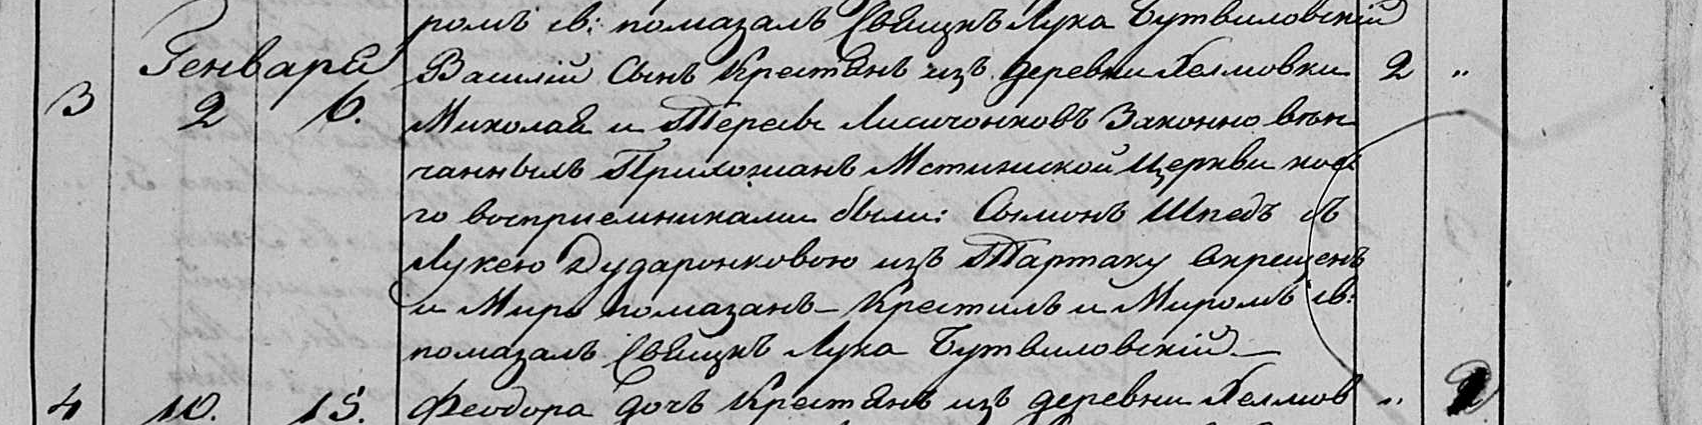 ромъ св: помазалъ Свящнкъ Лука Бутвиловскій
Генваря
3 2 6. Василій Сынъ Крестянъ изъ деревни Хелмовки 2 "
Миколая и Тересы Лисичонковъ Законно вѣн
чанныхъ Прихожанъ Мстижской Церкви кое
го восприемниками были: Сымонъ Шпедъ съ
Лукею Дударонковою изъ Тартаку окрещенъ
и Миро помазанъ – Крестилъ и Миромъ св:
помазалъ Свящнкъ Лука Бутвиловскій –
4 10. 15. Феодора Дочь Крестянъ изъ деревни Хелмов "